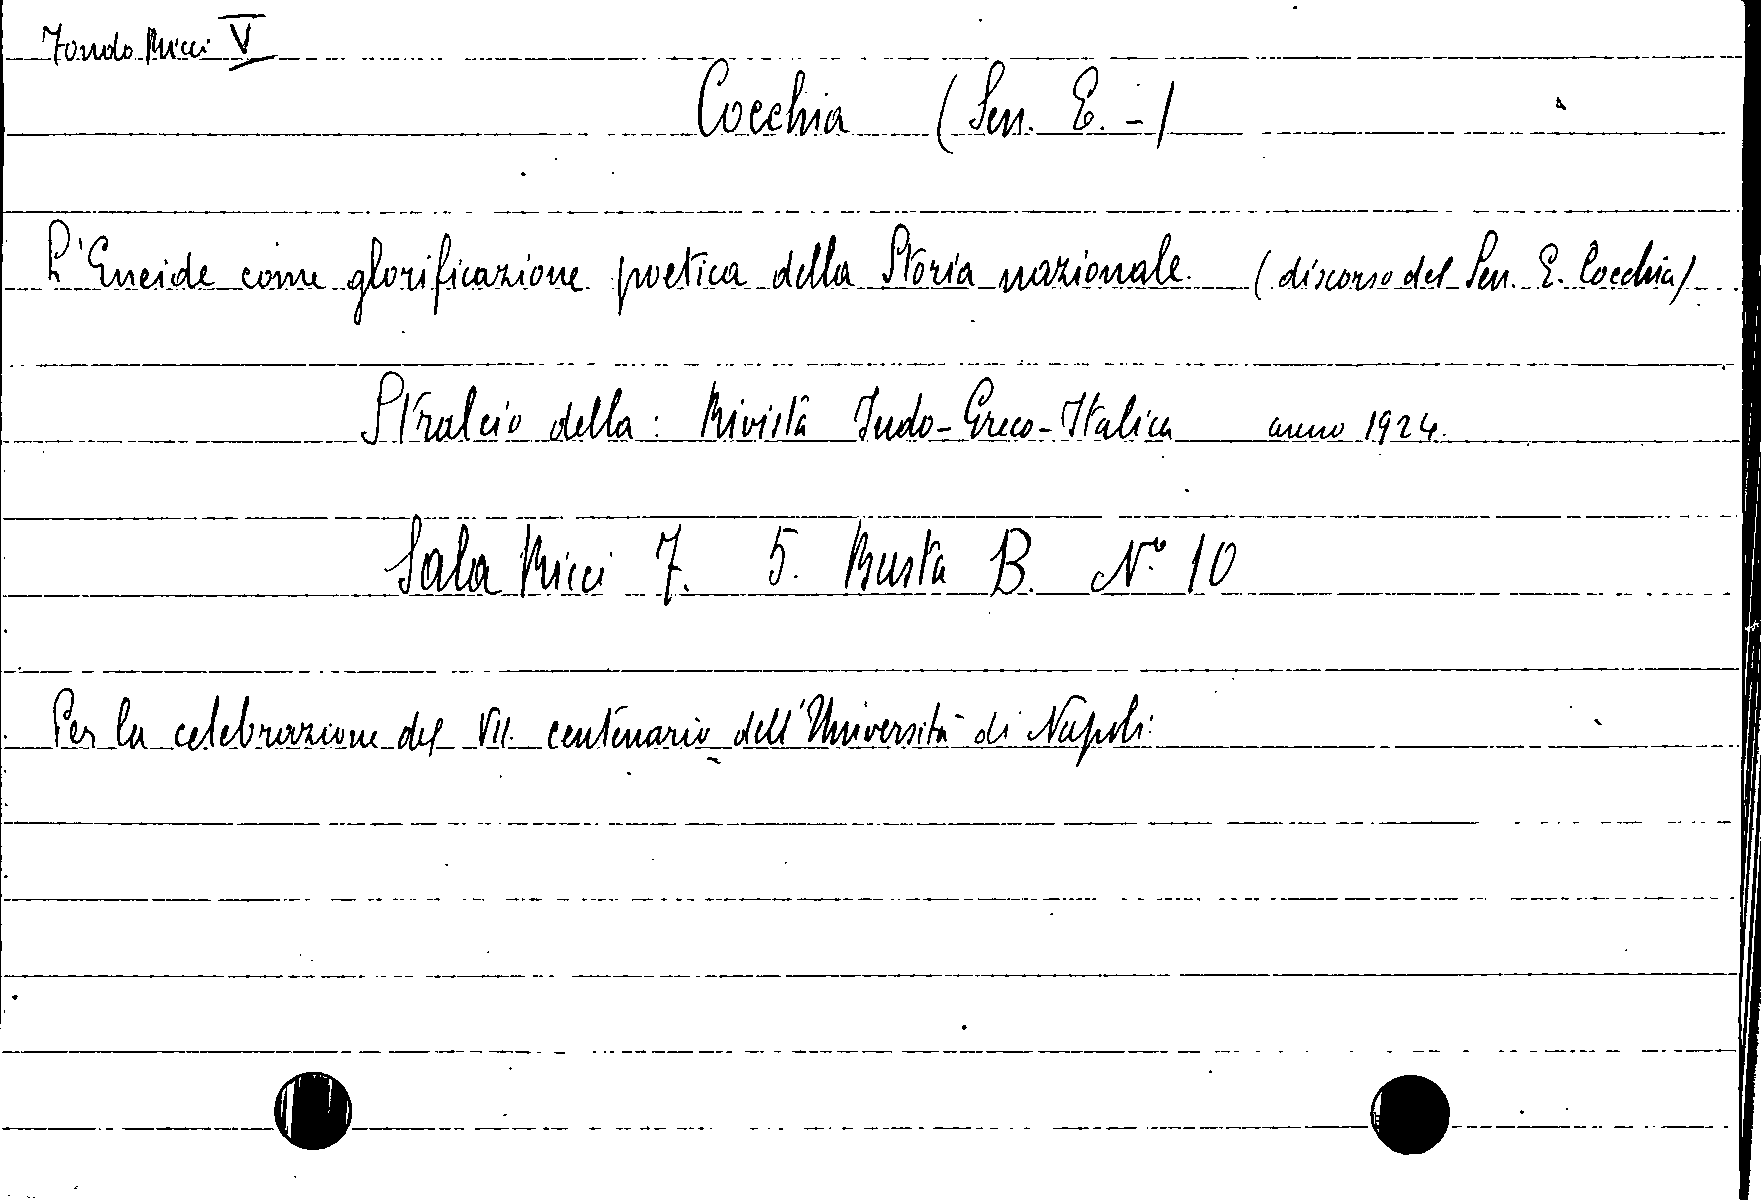 Fondo Ricci V
Cocchia (Sen. E. -)
L'Eneide come glorificazione poetica della Storia nazionale. (discorso del Sen. E. Cocchia)
Stralcio della: Rivista Indo-Greco-Italica anno 1924.
Sala Ricci 7. 5. Busta B. N.º 10
Per la celebrazione del VII. centenario dell'Università di Napoli.